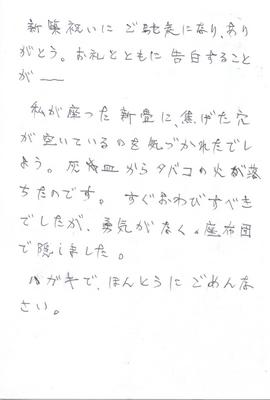 新築祝いにご馳走になり、あり
がとう。お礼とともに告白すること
が――
私が座った新畳に、焦げた穴
が空いているのを気づかれたでし
ょう。灰皿からタバコの火が落
ちたのです。すぐおわびすべき
でしたが、勇気がなく、座布団
で隠しました。
ハガキで、ほんとうにごめんな
さい。